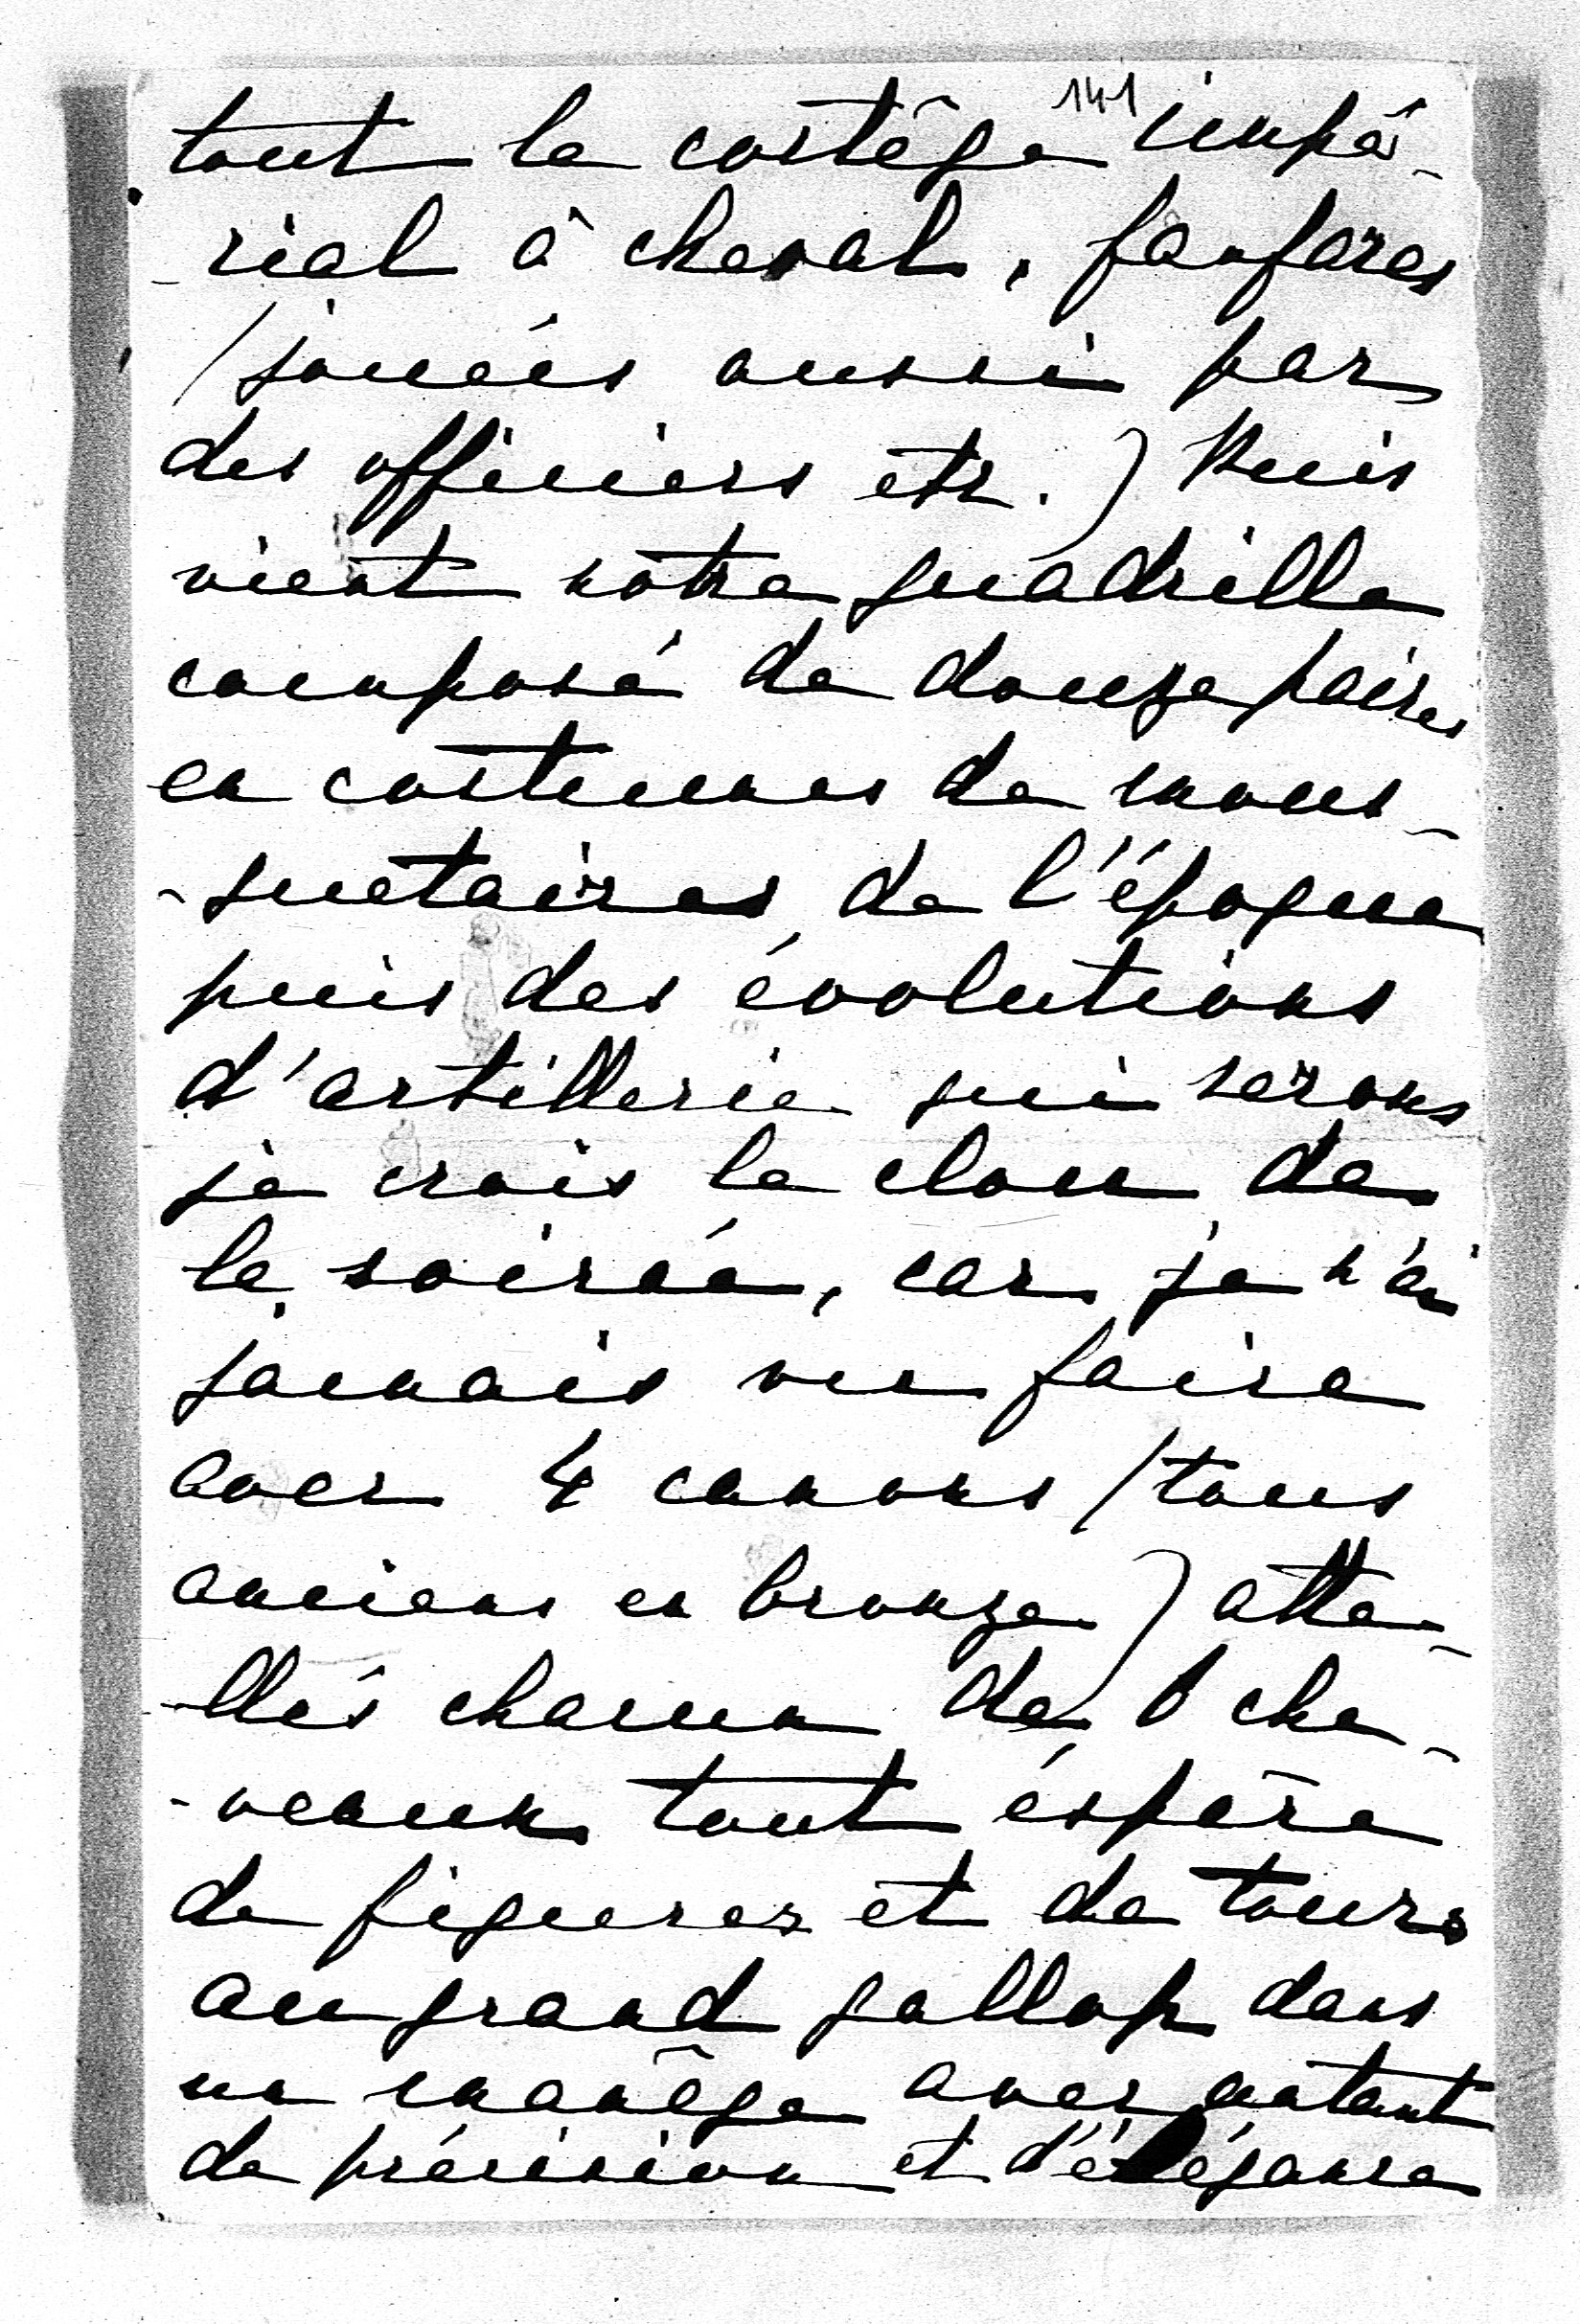 141
tout le cortêge impé-
-rial à cheval, fanfares
(jouées aussi par
des officiers etc.) Puis
vient notre quadrille
composé de douze paires
en costumes de mous-
-quetaires de l'époque
puis des évolutions
d'artillerie qui serons
je crois le clou de
la soirée, car je n'ai
jamais vu faire
avec 4 canons (tous
anciens en bronze) atte-
-llés chacun de 6 che-
-veaux tout éspèce
de figures et de tours
au grand gallop dans
un manêge avec autant
de précision et d'élégance